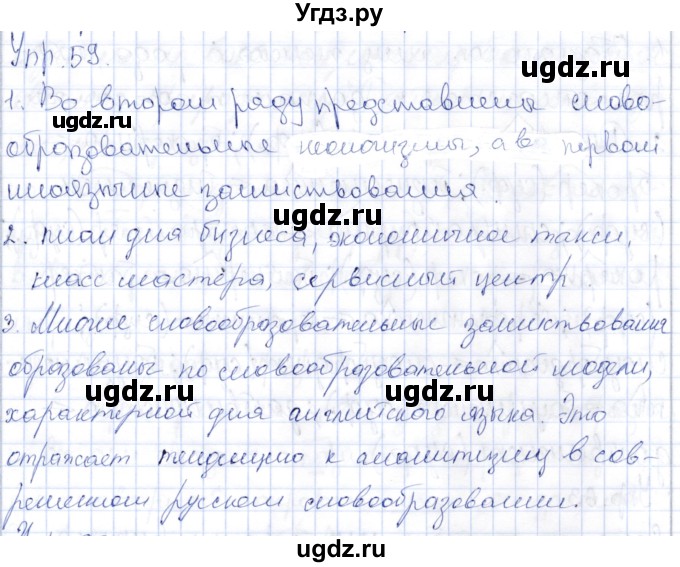 Угдз.ру
Упр. 59.
ugdz.ru ugdz.ru
1. Во втором ряду представлены слово-
ugdz.ru
образовательные неологизмы, а в первом
иноязычные заимствования.
ugdz.ru
2. план для бизнеса, экономичное такси,
класс мастера, сервисный центр.
ugdz.ru
3. Многие словообразовательные заимствования
образованы по словообразовательной модели,
ugdz.ru ugdz.ru
характерной для английского языка. Это
отражает тенденцию к аналитизму в сов-
ugdz.ru
ременном русском словообразовании.
ugdz.ru